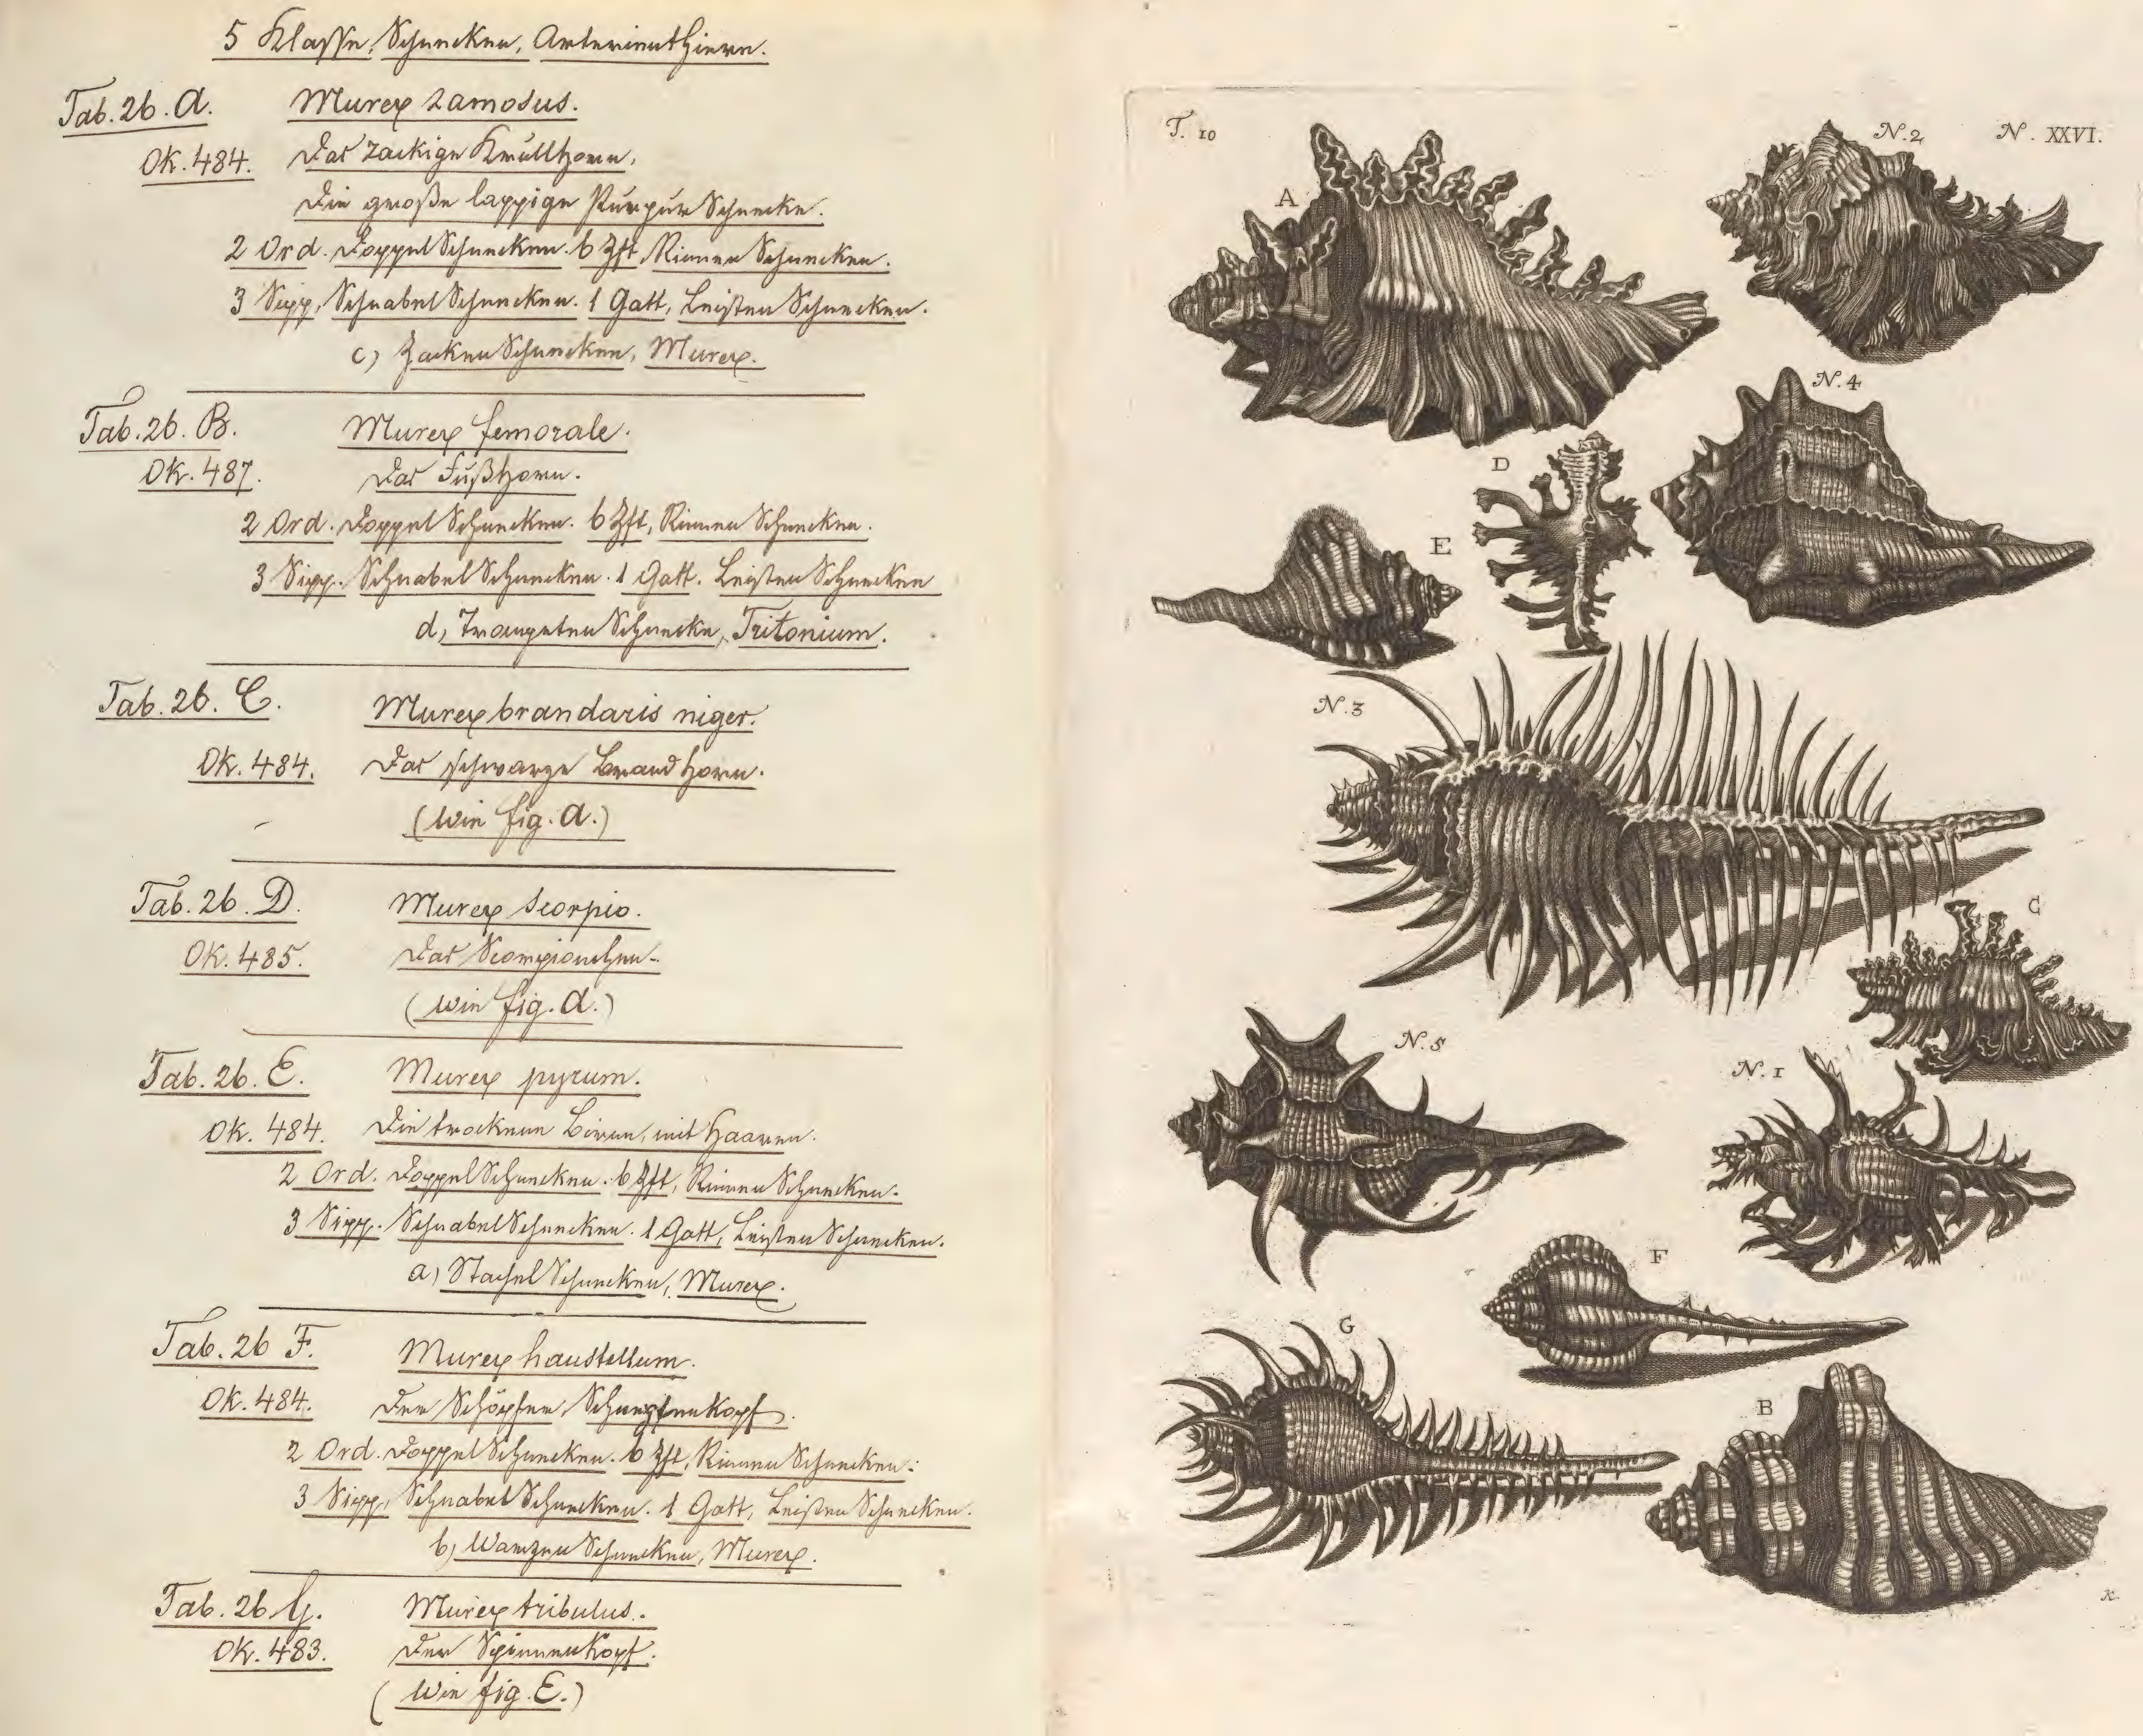 5 Klasse, Schnecken, Arterienthiere.
Tab. 26. A. Murex ramosus.
Ok. 484. Das zackige Krullhorn,
Die große lappige Purpur Schnecke.
2 Ord. Doppel Schnecken. 6 Zft, Rinnen Schnecken.
3 Sipp, Schnabel Schnecken. 1 Gatt, Leisten Schnecken.
c) Zacken Schnecken, Murex.
Tab. 26. B. Murex femorale.
Ok. 487. Das Fußhorn.
2 Ord. Doppel Schnecken. 6 Zft, Rinnen Schnecken.
3 Sipp. Schnabel Schnecken. 1 Gatt. Leisten Schnecken
d, Trompeten Schnecke, Tritonium.
Tab. 26. C. Murex brandaris niger.
Ok. 484. Das schwarze Brand Horn.
(wie fig. A.)
Tab. 26. D. Murex scorpio.
Ok. 485. Das Scorpionchen.
(wie fig. A.)
Tab. 26. E. Murex pyrum.
Ok. 484. Die trockene Birne, mit Haaren.
2 Ord. Doppel Schnecken. 6 Zft, Rinnen Schnecken.
3 Sipp. Schnabel Schnecken. 1 Gatt, Leisten Schnecken.
a) Stachel Schnecken, Murex.
Tab. 26 F. Murex haustellum.
Ok. 484. Der Schöpfer, Schnepfenkopf.
2 Ord. Doppel Schnecken. 6 Zft, Rinnen Schnecken.
3 Sipp, Schnabel Schnecken. 1 Gatt, Leisten Schnecken.
b) Warzen Schnecken, Murex.
Tab. 26 G. Murex tribulus.
Ok. 483. Der Spinnenkopf.
(wie fig. E.)
T. 10
N. 2
N. XXVI.
A
N. 4
D
E
N. 3
C
N. 5
N. 1
F
G
B
K